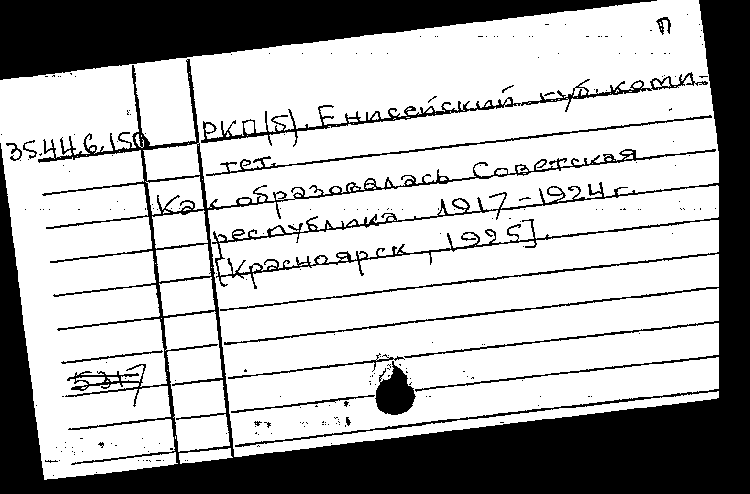 П
35.44.6.150 РКП(б). Енисейский губ. коми-
тет.
Как образовалась Советская
республика. 1917-1924 г.
[Красноярск, 1925].
5317